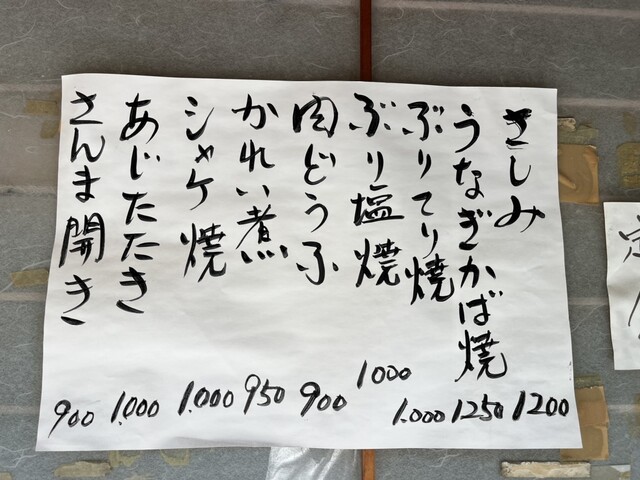 さしみ 1200
うなぎかば焼 1250
ぶりてり焼 1.000
ぶり塩焼 1000
肉どうふ 900
かれい煮 950
シャケ焼 1.000
あじたたき 1.000
さんま開き 900
定